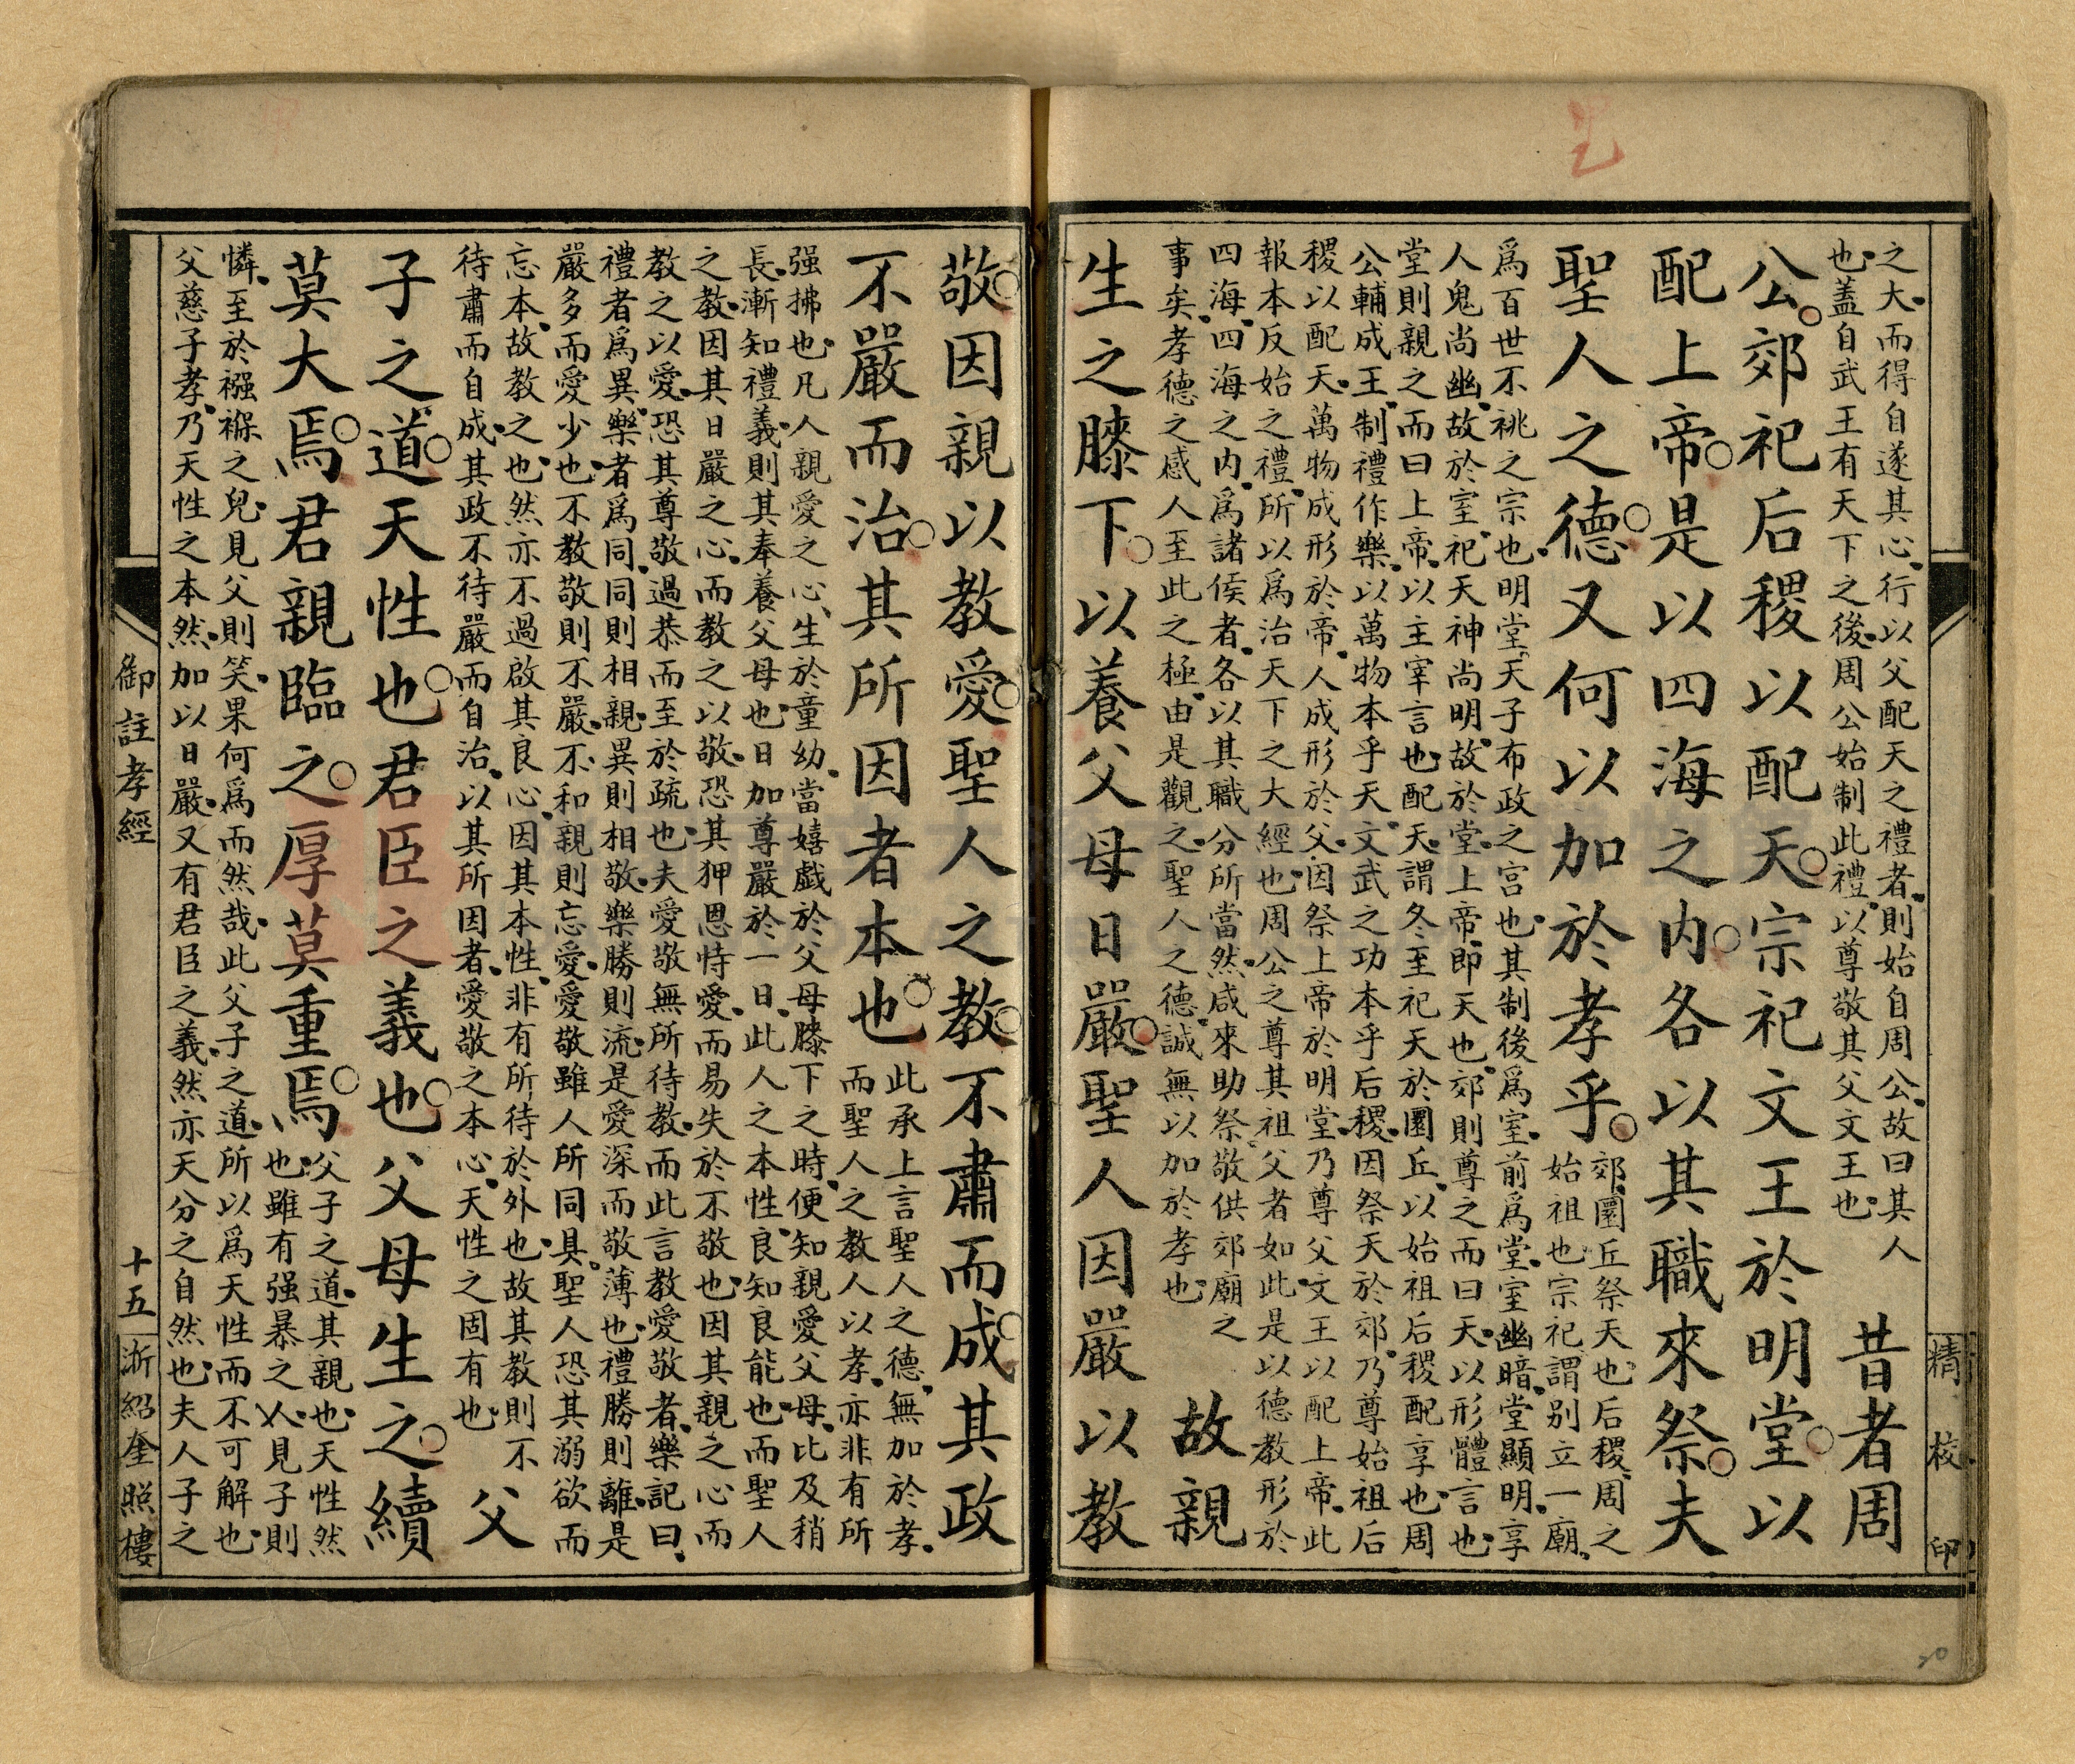 之大而得自遂其心行以父配天之禮者則始自周公故曰其人
也蓋自武王有天下之後周公始制此禮以尊敬其父文王也
昔者周
公郊祀后稷以配天宗祀文王於明堂以
配上帝是以四海之內各以其職來祭夫
聖人之德又何以加於孝乎
郊圜丘祭天也后稷周之
始祖也宗祀謂别立一廟
爲百世不祧之宗也明堂天子布政之宮也其制後爲室前爲堂室幽暗堂顯明享
人鬼尚幽故於室祀天神尚明故於堂上帝即天也郊則尊之而曰天以形體言也
堂則親之而曰上帝以主宰言也配天謂冬至祀天於圜丘以始祖后稷配享也周
公輔成王制禮作樂以萬物本乎天文武之功本乎后稷因祭天於郊乃尊始祖后
稷以配天萬物成形於帝人成形於父因祭上帝於明堂乃尊父文王以配上帝此
報本反始之禮所以爲治天下之大經也周公之尊其祖父者如此是以德教形於
四海四海之內爲諸侯者各以其職分所當然咸來助祭敬供郊廟之
事矣孝德之感人至此之極由是觀之聖人之德誠無以加於孝也
故親
生之膝下以養父母日嚴聖人因嚴以教
敬因親以教愛聖人之教不肅而成其政
不嚴而治其所因者本也
此承上言聖人之德無加於孝
而聖人之教人以孝亦非有所
强拂也凡人親愛之心生於童幼當嬉戯於父母膝下之時便知親愛父母比及稍
長漸知禮義則其奉養父母也日加尊嚴於一日此人之本性良知良能也而聖人
之教因其日嚴之心而教之以敬恐其狎恩恃愛而易失於不敬也因其親之心而
教之以愛恐其尊敬過恭而至於疏也夫愛敬無所待教而此言教愛敬者樂記曰
禮者爲異樂者爲同同則相親異則相敬樂勝則流是愛深而敬薄也禮勝則離是
嚴多而愛少也不教敬則不嚴不和親則忘愛愛敬雖人所同具聖人恐其溺欲而
忘本故教之也然亦不過啟其良心因其本性非有所待於外也故其教則不
待肅而自成其政不待嚴而自治以其所因者愛敬之本心天性之固有也
父
子之道天性也君臣之義也父母生之續
莫大焉君親臨之厚莫重焉
父子之道其親也天性然
也雖有强暴之人見子則
憐至於襁褓之兒見父則笑果何爲而然哉此父子之道所以爲天性而不可解也
父慈子孝乃天性之本然加以日嚴又有君臣之義然亦天分之自然也夫人子之
御註孝經
十五
浙紹奎照樓
精校印
20